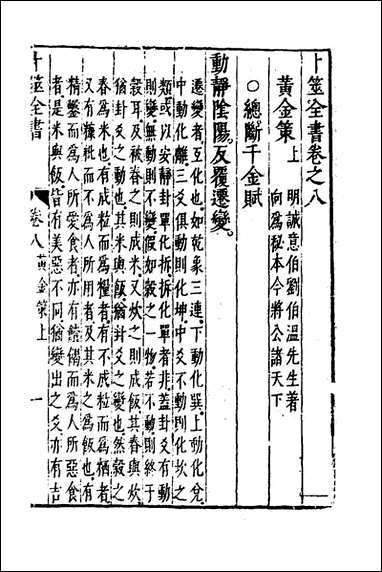 卜筮全書卷之八
黃金策上
明誠意伯劉伯温先生著
向爲秘本今將公諸天下
○總斷千金賦
動靜陰陽反覆遷變
遷變者互化也如乾象三連下動化巽上動化兌
中動化離三爻俱動則化坤中爻不動則化坎之
類或以安靜卦單化拆拆化單者非蓋卦爻有動
則變無動則不變假如穀之一物若不動則終于
穀耳及被春之則成米又炊之則成飯其舂與炊
猶卦爻之動也其米與飯猶卦爻之變也然穀之
舂爲米也有成粒而爲糧者有不成粒而爲栖者
又有糠秕而不爲人所用者及其米之爲飯也有
精鑿而爲人所愛食者亦有饐餲而爲人所惡食
者是米與飯皆有美惡不同猶變出之爻亦有吉
卜筮全書
卷八黃金策上
一